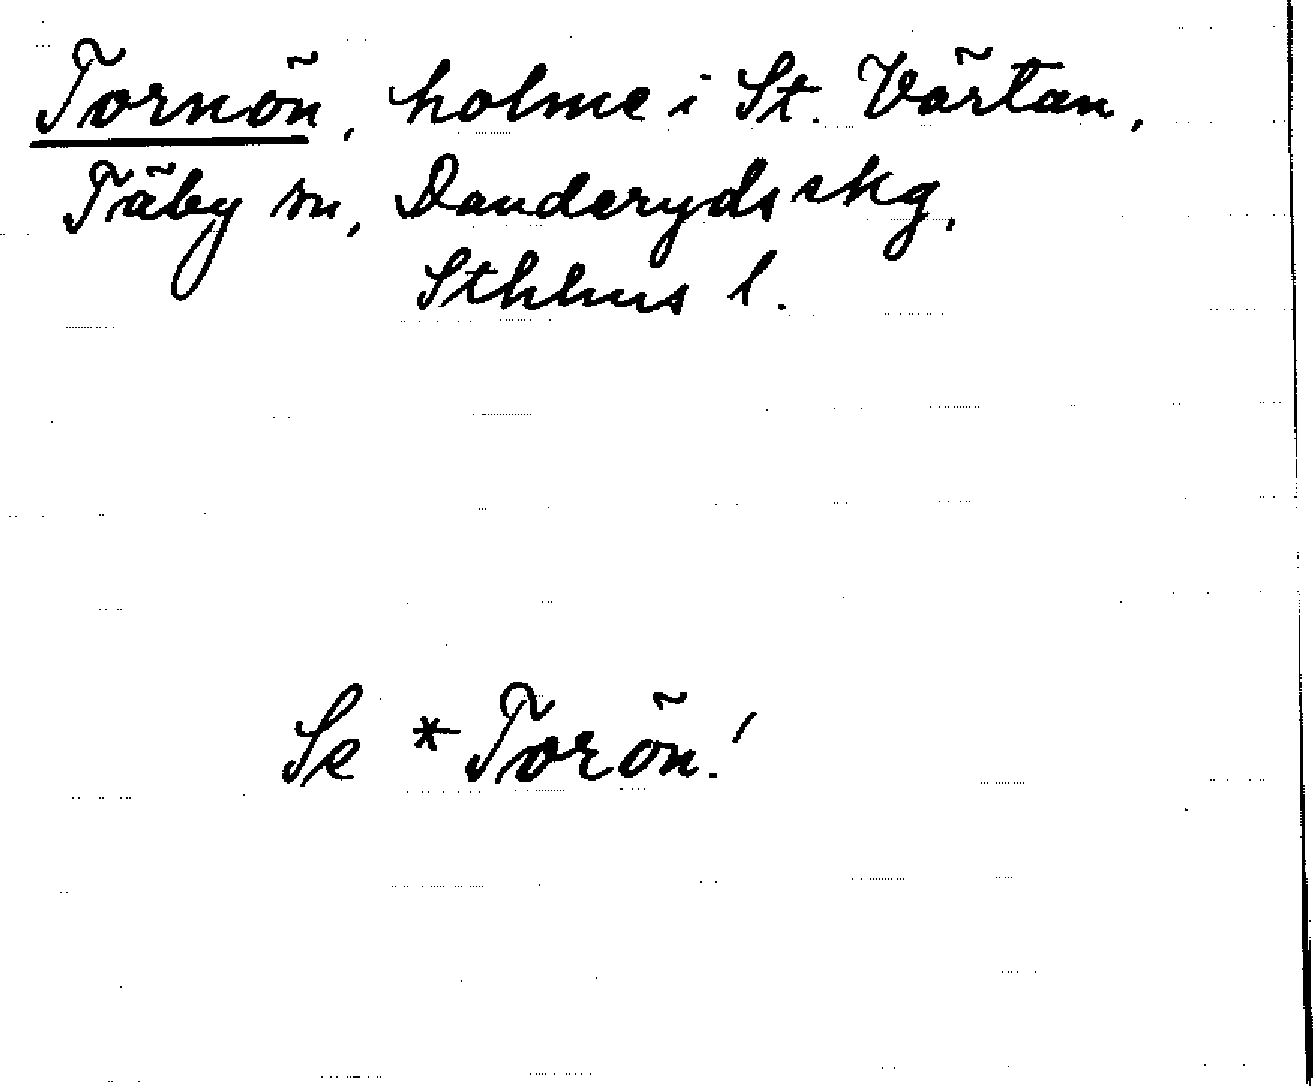 Tornön, holme i St. Värtan,
Täby sn, Danderyds skg,
Sthlms l.
Se *Torön!